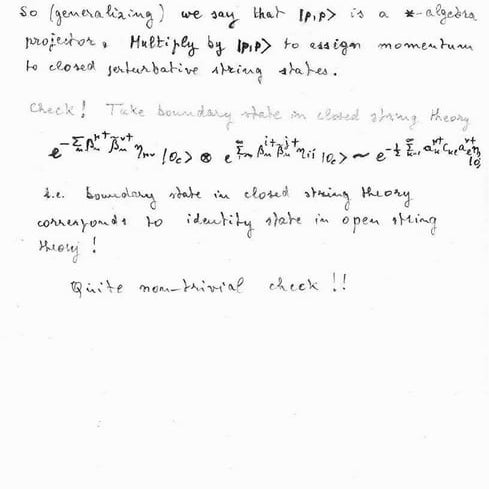 So (generalizing) we say that |p,p> is a *-algebra
projector. Multiply by |p,p> to assign momentum
to closed perturbative string states.
Check! Take boundary state in closed string theory
|0c> ⊗ |0c> ~
i.e. boundary state in closed string theory
corresponds to identity state in open string
theory!
Quite non-trivial check!!